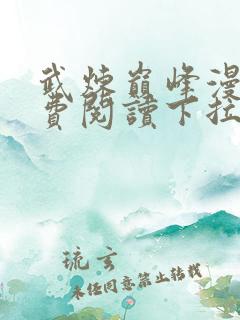 武炼巅峰漫
费閱讀下拉
琉玄
未经同意禁止转载